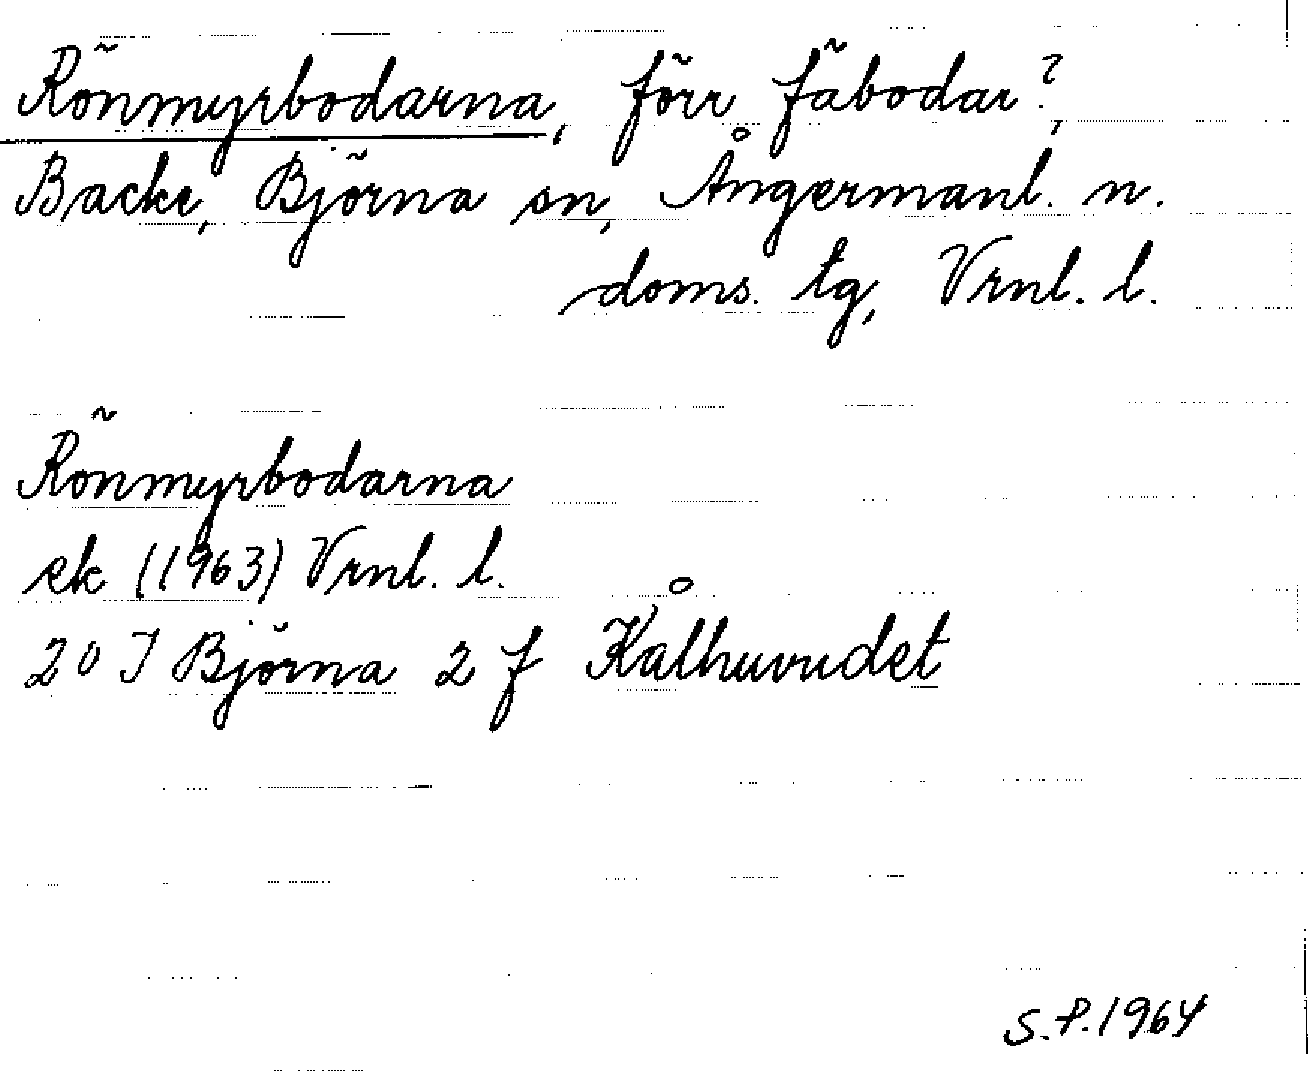 Rönmyrbodarna, förr fäbodar?,
Backe, Björna sn, Ångermanl. n.
doms. tg, Vrnl. l.
Rönmyrbodarna
ek (1963) Vrnl. l.
20 I Björna 2 f Kålhuvudet
S.P. 1964